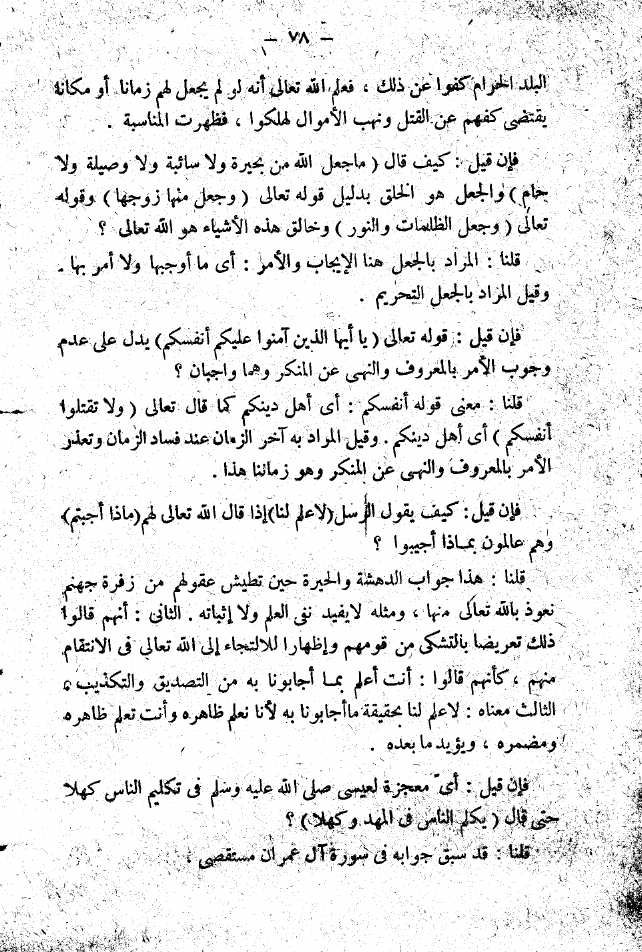 — ٧٨ —
البلد الحرام كفوا عن ذلك ، فعلم الله تعالى أنه لو لم يجعل لهم زمانا أو مكانا
يقتضى كفهم عن القتل ونهب الأموال لهلكوا ، فظهرت المناسبة .
فإن قيل : كيف قال ( ماجعل الله من بحيرة ولا سائبة ولا وصيلة ولا
حام ) والجعل هو الخلق بدليل قوله تعالى ( وجعل منها زوجها ) وقوله
تعالى ( وجعل الظلمات والنور ) وخالق هذه الأشياء هو الله تعالى ؟
قلنا : المراد بالجعل هنا الإيجاب والأمر : أى ما أوجبها ولا أمر بها .
وقيل المراد بالجعل التحريم .
فإن قيل : قوله تعالى ( يا أيها الذين آمنوا عليكم أنفسكم ) يدل على عدم
وجوب الأمر بالمعروف والنهى عن المنكر وهما واجبان ؟
قلنا : معنى قوله أنفسكم : أى أهل دينكم كما قال تعالى ( ولا تقتلوا
أنفسكم ) أى أهل دينكم . وقيل المراد به آخر الزمان عند فساد الزمان وتعذر
الأمر بالمعروف والنهى عن المنكر وهو زماننا هذا .
فإن قيل : كيف يقول الرسل ( لاعلم لنا ) إذا قال الله تعالى لهم ( ماذا أجبتم )
وهم عالمون بماذا أجيبوا ؟
قلنا : هذا جواب الدهشة والحيرة حين تطيش عقولهم من زفرة جهنم
نعوذ بالله تعالى منها ، ومثله لايفيد نفى العلم ولا إثباته . الثانى : أنهم قالوا
ذلك تعريضا بالتشكى من قومهم وإظهارا للالتجاء إلى الله تعالى فى الانتقام
منهم ، كأنهم قالوا : أنت أعلم بما أجابونا به من التصديق والتكذيب ،
الثالث معناه : لاعلم لنا بحقيقة ماأجابونا به لأنا نعلم ظاهره وأنت تعلم ظاهره
ومضمره ، ويؤيد ما بعده .
فإن قيل : أىّ معجزة لعيسى صلى الله عليه وسلم فى تكليم الناس كهلا
حتى قال ( يكلم الناس فى المهد وكهلا ) ؟
قلنا : قد سبق جوابه فى سورة آل عمران مستقصى .